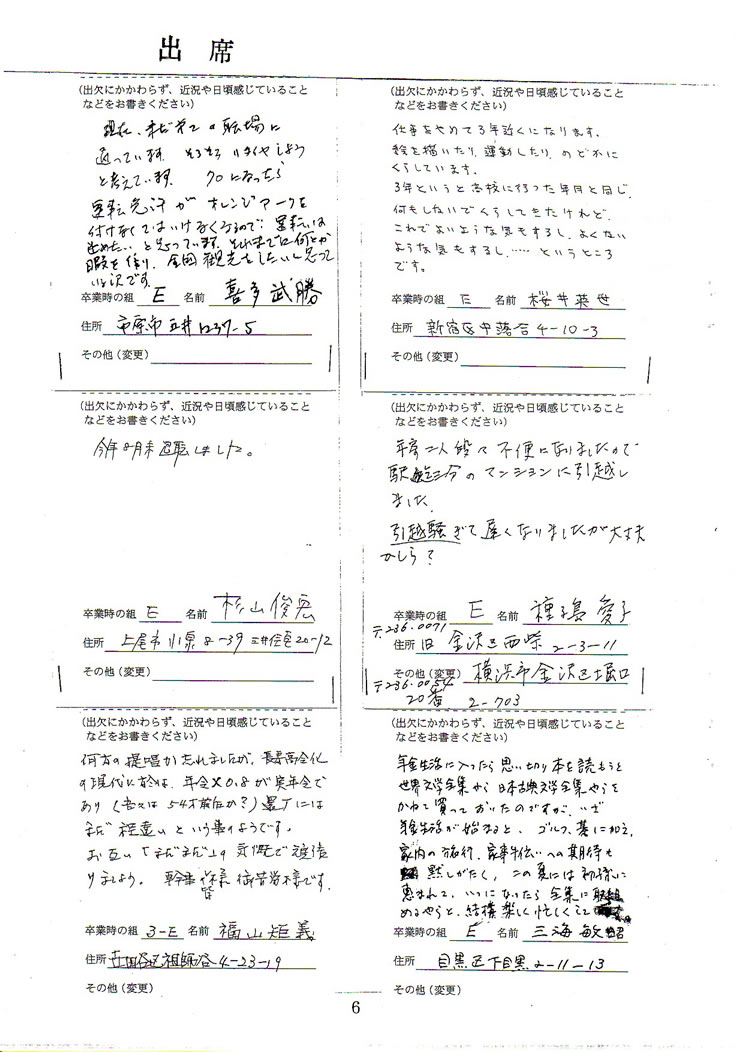 出席
(出欠にかかわらず、近況や日頃感じていること
などをお書きください)
現在、 の職場に
通っています。そろそろ しよう
と考えています。 70になったら
運転免許がオレンジマークを
付けなくてはいけなくなるので、運転は
止めたいと思っています。それまでに何とか
暇を作り、全国観光をしたいと思って
いる所です。
卒業時の組 E 名前 喜多武勝
住所 市原市五井1237-5
その他(変更)
(出欠にかかわらず、近況や日頃感じていること
などをお書きください)
仕事をやめて3年近くになります。
絵を描いたり、運動したり、のどかに
くらしています。
3年というと高校に行った年月と同じ。
何もしないでくらしてきたけれど、
これでよいような気もするし、よくない
ような気もするし、……というところ
です。
卒業時の組 E 名前 桜井英世
住所 新宿区中落合4-10-3
その他(変更)
(出欠にかかわらず、近況や日頃感じていること
などをお書きください)
今年 月末退職しました。
卒業時の組 E 名前 杉山俊宏
住所 上尾市小泉8-39 三井住宅20-12
その他(変更)
(出欠にかかわらず、近況や日頃感じていること
などをお書きください)
二人段々不便になりましたので
駅 三分のマンションに引越し
ました。
引越騒ぎで遅くなりましたが大丈夫
かしら?
卒業時の組 E 名前 種子島愛子
〒236-0071
住所 旧 金沢区西柴2-3-11
その他(変更) 横浜市金沢区堀口
〒236-0054
20番 2-703
(出欠にかかわらず、近況や日頃感じていること
などをお書きください)
何方の提唱か忘れましたが、長寿高令化
の現代に於ては、年令×0.8が実年令で
あり(老女は54才前后か?)墨丁には
まだ程遠いという事のようです。
お互い「まだまだ」の気概で頑張
りましょう。幹事 様御苦労様です。
皆
卒業時の組 3-E 名前 福山矩義
住所 世田谷区祖師谷4-23-19
その他(変更)
(出欠にかかわらず、近況や日頃感じていること
などをお書きください)
年金生活に入ったら思い切り本を読もうと
世界文学全集から日本古典文学全集やらを
かねて買っておいたのですが、いざ
年金生活が始まると、ゴルフ、碁に加え、
家内の旅行、家事手伝いへの期待も
黙しがたく、この夏には初孫に
恵まれて、いつになったら全集に取組
めるやらと、結構楽しく忙しくして
卒業時の組 E 名前 三海敏昭
住所 目黒区下目黒2-11-13
その他(変更)
6